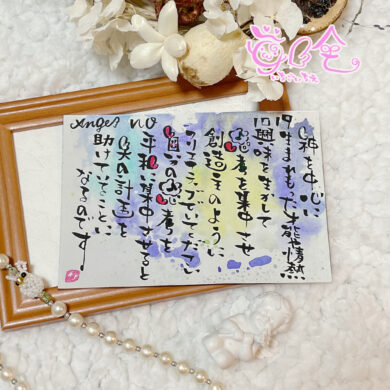 Angel NO
1910
神を中心に
生まれもった才能や情熱
興味を生かして
思考を集中させ
創造主のように
クリエイティブでいてください
自分の思考を
平和に集中させると
天の計画を
助けていることに
なるのです